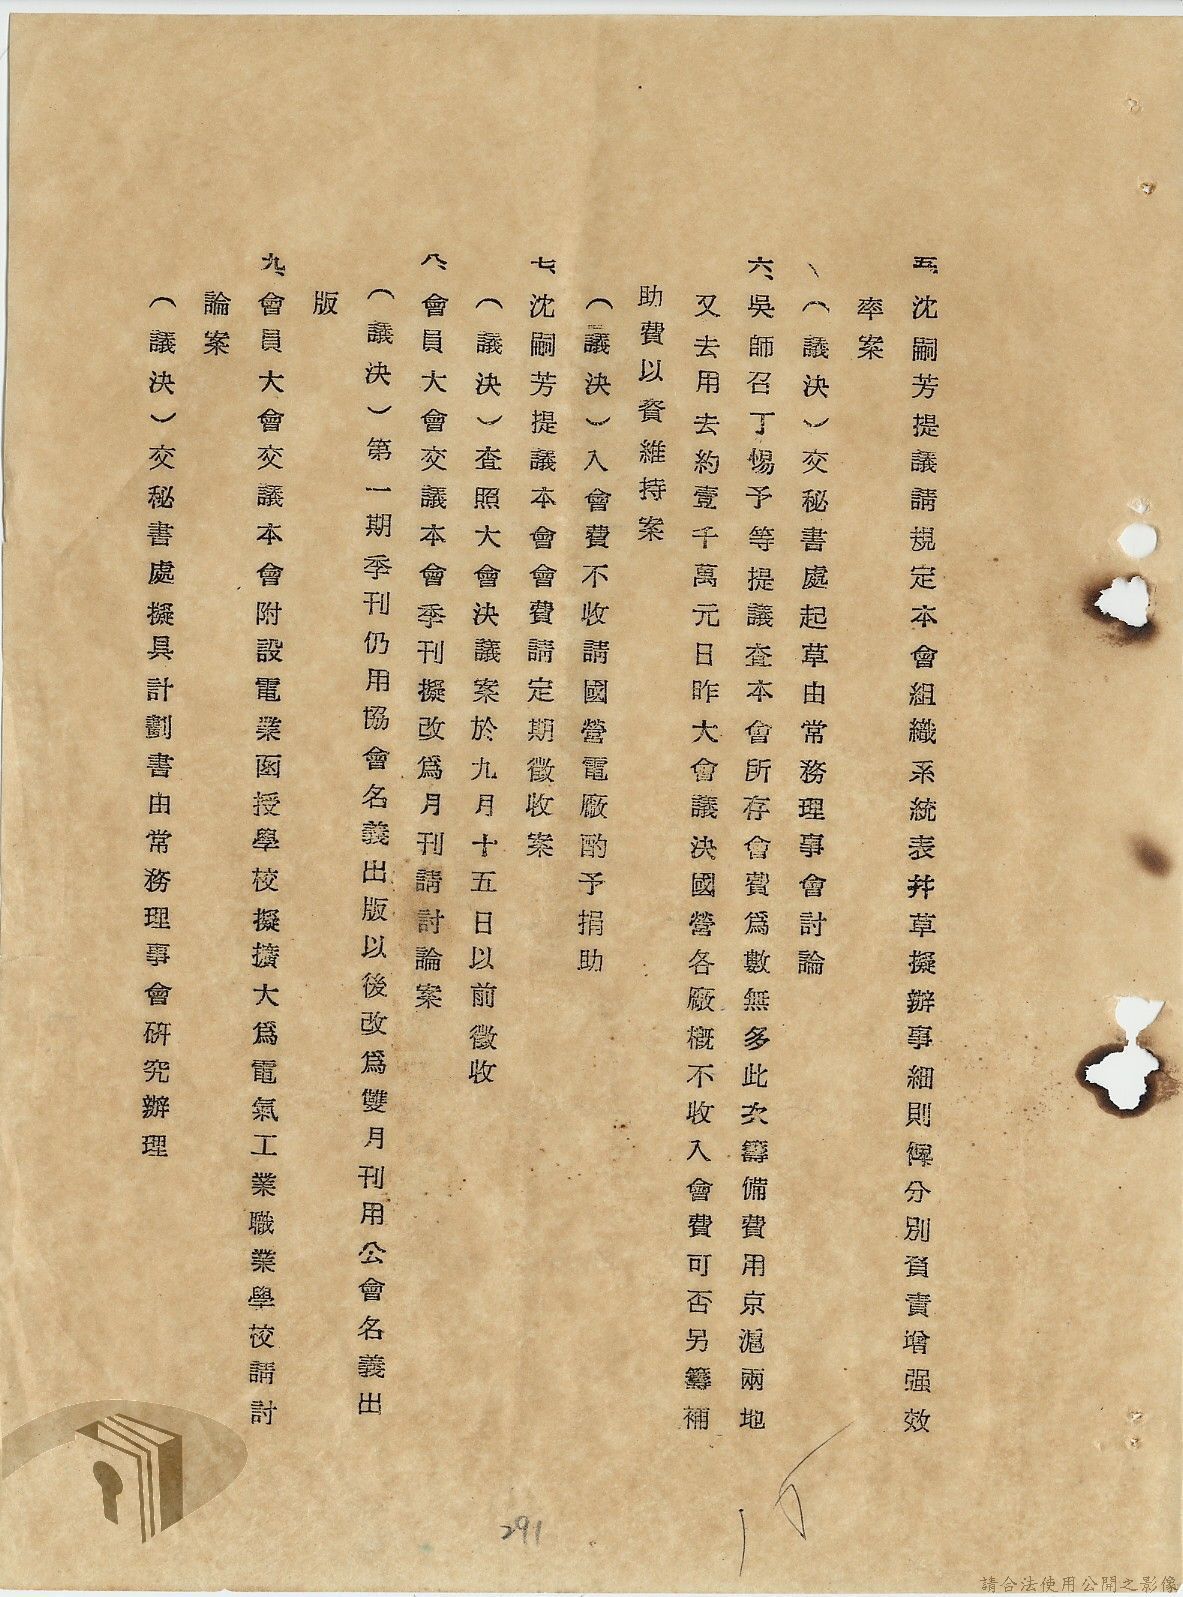 五、沈嗣芳提議請規定本會組織系統表幷草擬辦事細則俾分別負責增强效
率案
（議決）交秘書處起草由常務理事會討論
六、吳師召丁惕予等提議查本會所存會費爲數無多此次籌備費用京滬兩地
又去用去約壹千萬元日昨大會議決國營各廠槪不收入會費可否另籌補
助費以資維持案
（議決）入會費不收請國營電廠酌予捐助
七、沈嗣芳提議本會會費請定期徵收案
（議決）查照大會決議案於九月十五日以前徵收
八、會員大會交議本會季刊擬改爲月刊請討論案
（議決）第一期季刊仍用協會名義出版以後改爲雙月刊用公會名義出
版
九、會員大會交議本會附設電業函授學校擬擴大爲電氣工業職業學校請討
論案
（議決）交秘書處擬具計劃書由常務理事會硏究辦理
291
請合法使用公開之影像